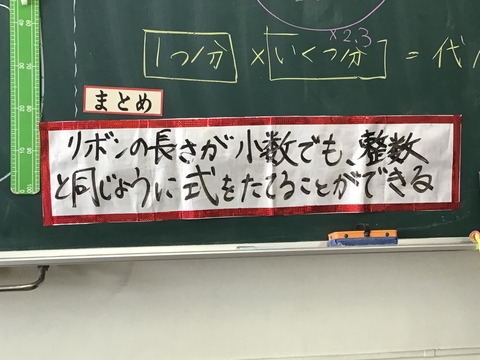 ×2.3
1つ分 × いくつ分 = 代
まとめ
リボンの長さが小数でも、整数
と同じように式をたてることができる